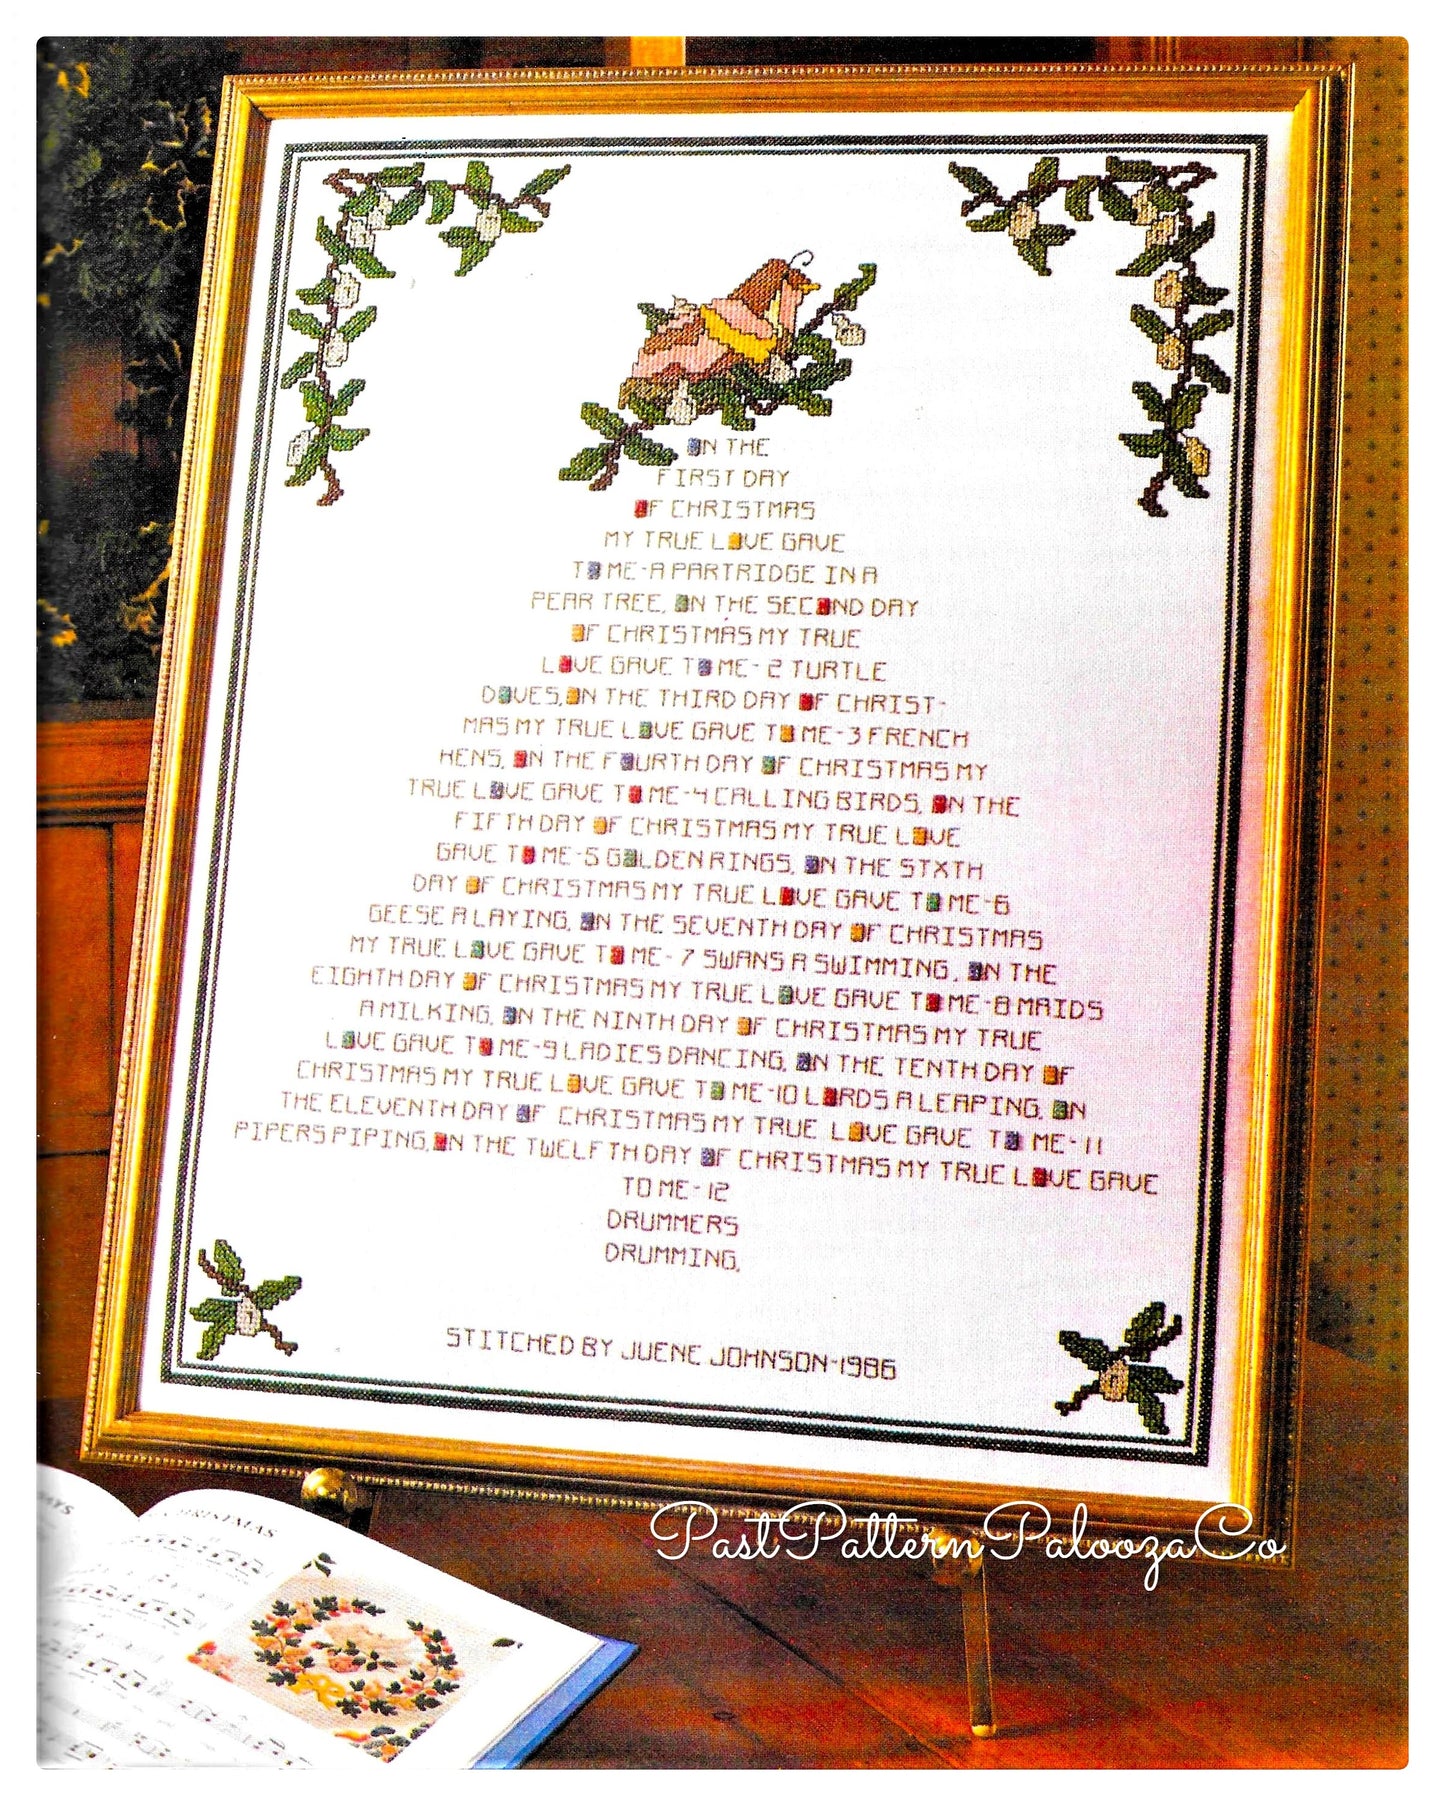 ON THE
FIRST DAY
OF CHRISTMAS
MY TRUE LOVE GAVE
TO ME-A PARTRIDGE IN A
PEAR TREE, ON THE SECOND DAY
OF CHRISTMAS MY TRUE
LOVE GAVE TO ME- 2 TURTLE
DOVES, ON THE THIRD DAY OF CHRIST-
MAS MY TRUE LOVE GAVE TO ME-3 FRENCH
HENS, ON THE FOURTH DAY OF CHRISTMAS MY
TRUE LOVE GAVE TO ME-4 CALLING BIRDS, ON THE
FIFTH DAY OF CHRISTMAS MY TRUE LOVE
GAVE TO ME-5 GOLDEN RINGS, ON THE STXTH
DAY OF CHRISTMAS MY TRUE LOVE GAVE TO ME-6
GEESE A LAYING, ON THE SEVENTH DAY OF CHRISTMAS
MY TRUE LOVE GAVE TO ME- 7 SWANS A SWIMMING, ON THE
EIGHTH DAY OF CHRISTMAS MY TRUE LOVE GAVE TO ME-8 MAIDS
A MILKING, ON THE NINTH DAY OF CHRISTMAS MY TRUE
LOVE GAVE TO ME-9 LADIES DANCING, ON THE TENTH DAY OF
CHRISTMAS MY TRUE LOVE GAVE TO ME-10 LORDS A LEAPING, ON
THE ELEVENTH DAY OF CHRISTMAS MY TRUE LOVE GAVE TO ME-11
PIPERS PIPING, ON THE TWELFTH DAY OF CHRISTMAS MY TRUE LOVE GAVE
TO ME-12
DRUMMERS
DRUMMING.
STITCHED BY JUENE JOHNSON-1986
PastPatternPaloozaCo